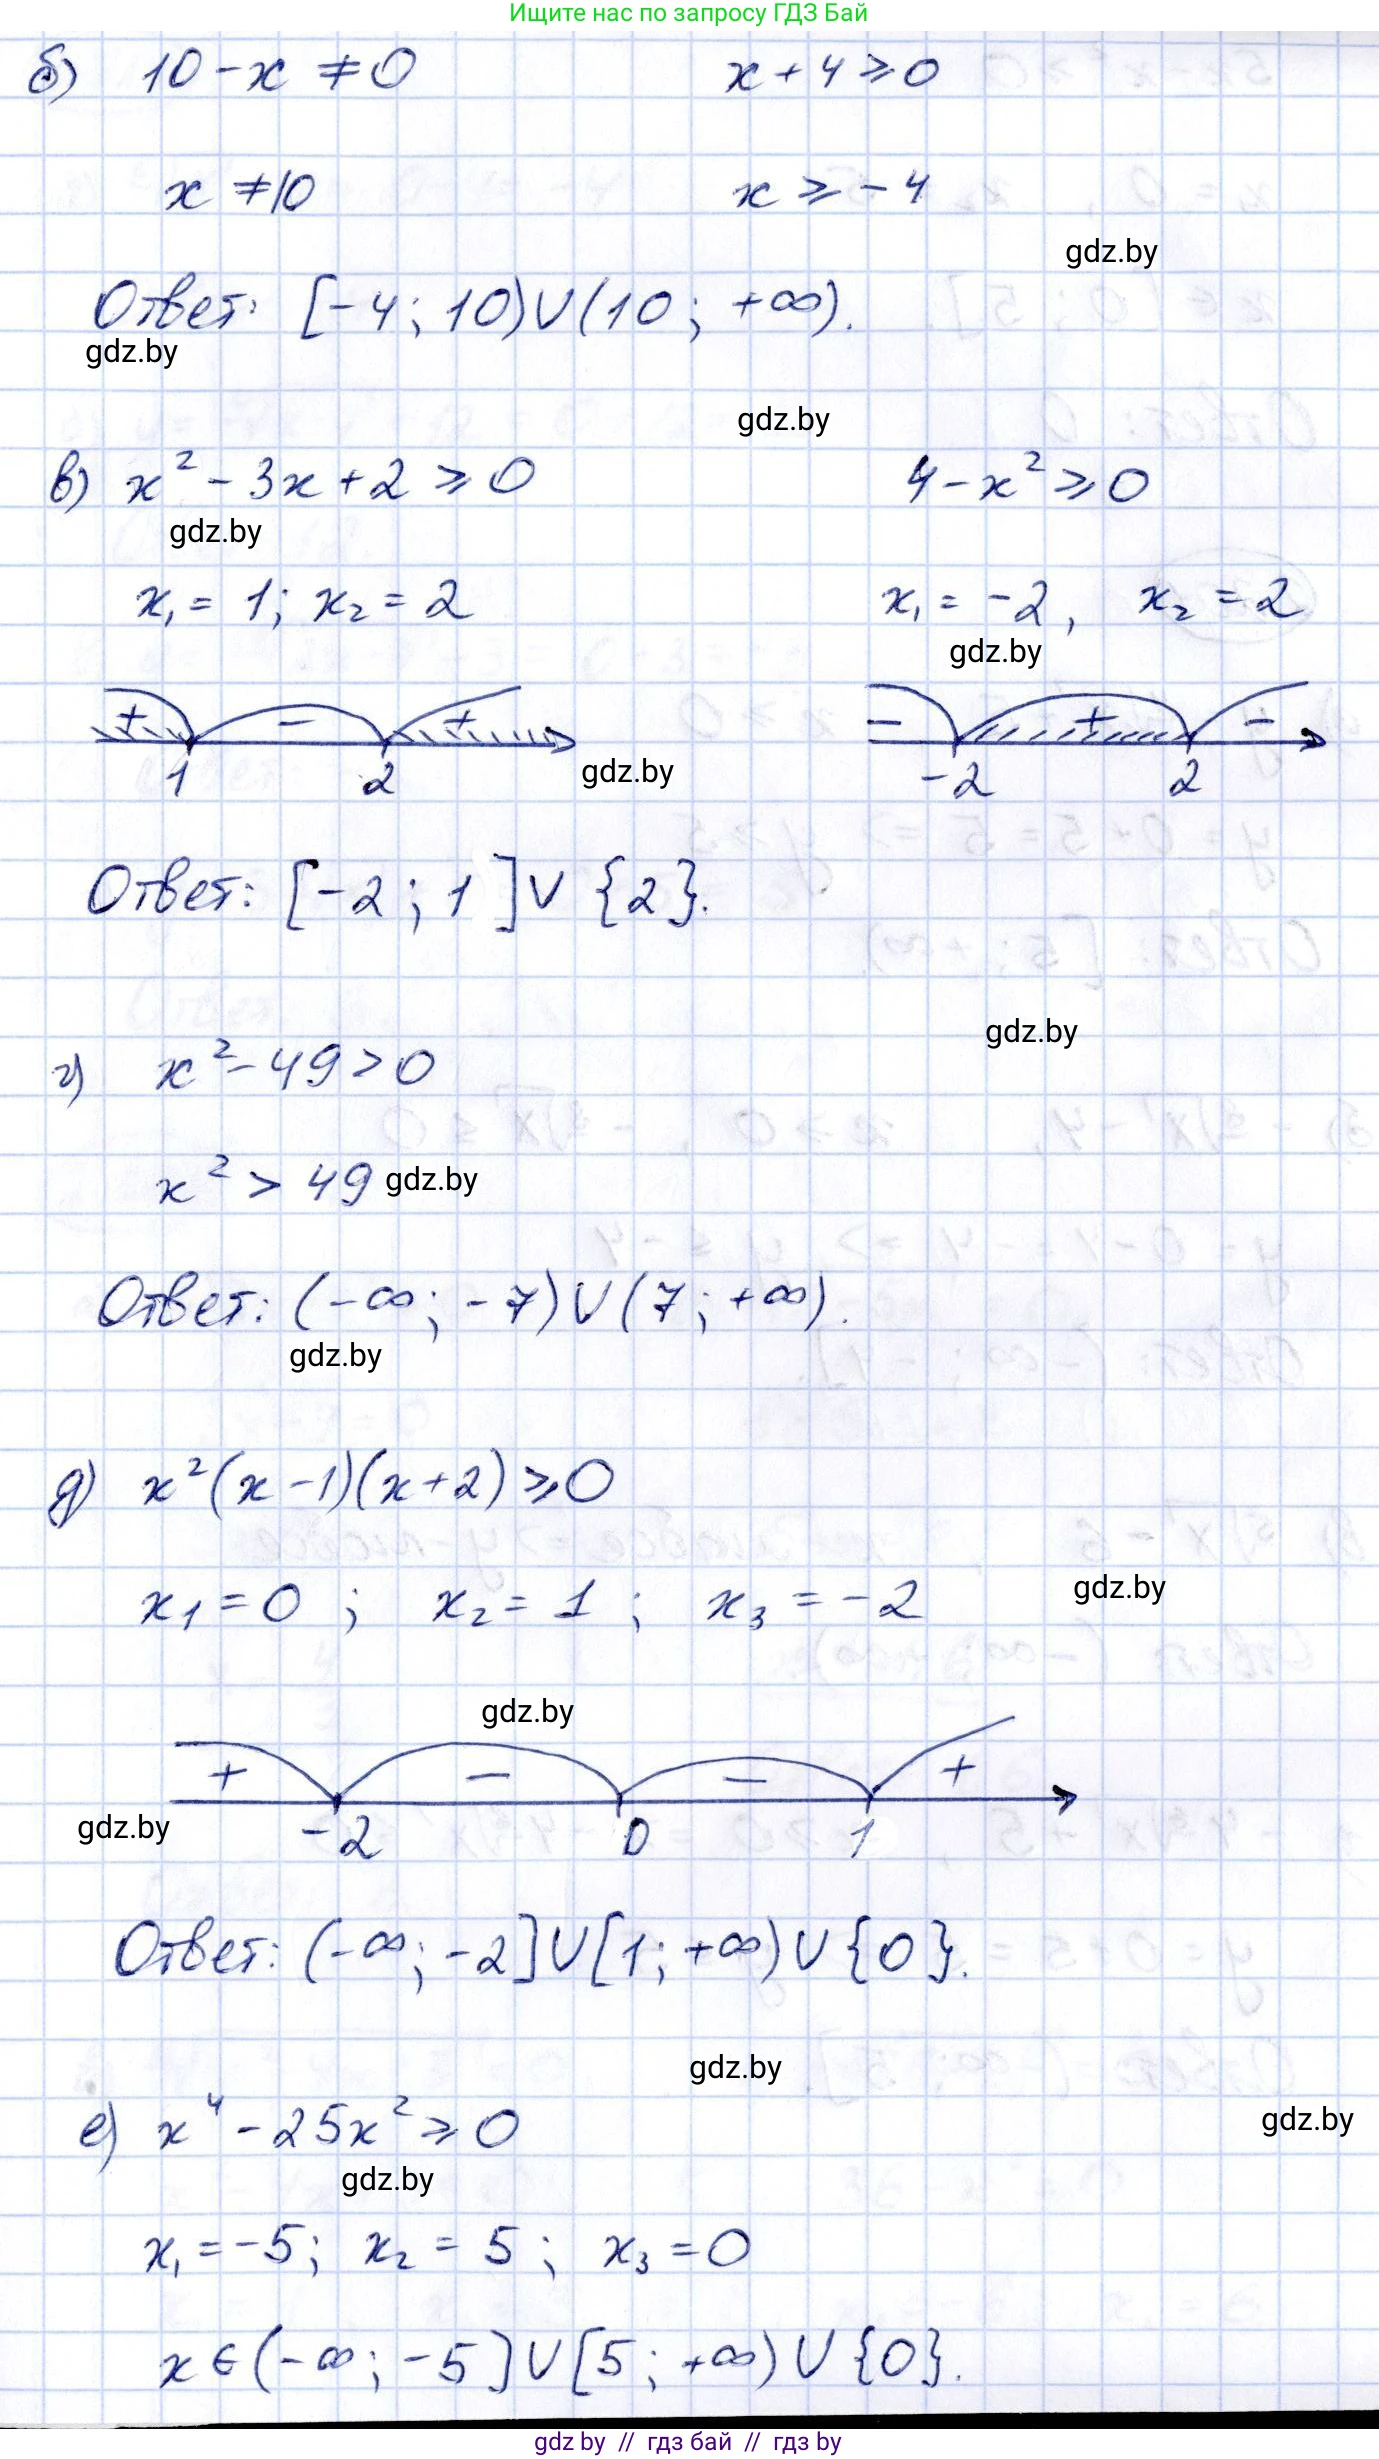 Ищите нас по запросу ГДЗ Бай
б) 10 - x ≠ 0 x + 4 ⩾ 0
x ≠ 10 x ⩾ - 4
gdz.by
Ответ: [-4; 10)∪(10; +∞).
gdz.by
gdz.by
в) x² - 3x + 2 ⩾ 0 4 - x² ⩾ 0
gdz.by
x₁ = 1; x₂ = 2 x₁ = -2, x₂ = 2
gdz.by
+ - + - + -
gdz.by
1 2 -2 2
Ответ: [-2; 1]∪{2}.
gdz.by
г) x² - 49 > 0
x² > 49 gdz.by
Ответ: (-∞; -7)∪(7; +∞).
gdz.by
д) x²(x - 1)(x + 2) ⩾ 0
x₁ = 0; x₂ = 1; x₃ = -2 gdz.by
gdz.by
+ - - +
gdz.by -2 0 1
Ответ: (-∞; -2]∪[1; +∞)∪{0}.
gdz.by
е) x⁴ - 25x² ⩾ 0 gdz.by
gdz.by
x₁ = -5; x₂ = 5; x₃ = 0
x ∈ (-∞; -5]∪[5; +∞)∪{0}.
gdz.by // гдз бай // гдз by